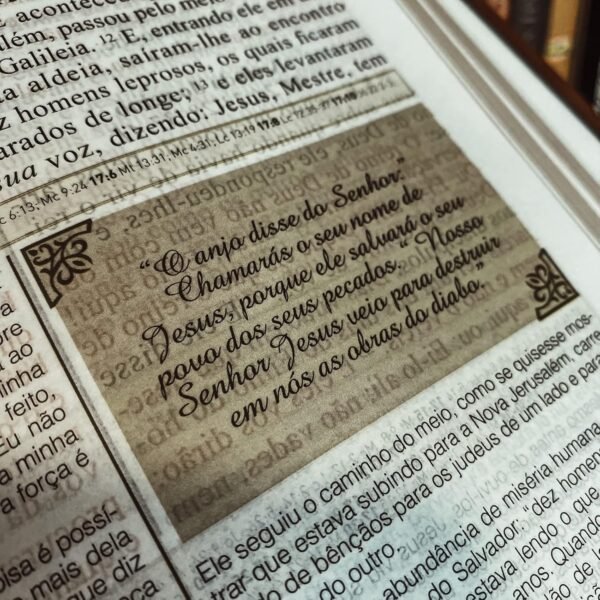 aconteceu
além, passou pelo mei
Galileia. 12 E, entrando ele em
ta aldeia, saíram-lhe ao encontro
z homens leprosos, os quais ficaram
parados de longe; 13 e eles levantaram
sua voz, dizendo: Jesus, Mestre, tem
c 6:13; Mc 9:24 17:6 Mt 13:31; Mc 4:31; Lc 13:19 17:8 Lc 12:35-37
“O anjo disse do Senhor:
Chamarás o seu nome de
Jesus, porque ele salvará o seu
povo dos seus pecados.“ Nosso
Senhor Jesus veio para destruir
em nós as obras do diabo.”
ao
inha
feito,
Eu não
a minha
a força é
oisa é possí-
mais dela
que diz
Ele seguiu o caminho do meio, como se quisesse mos-
trar que estava subindo para a Nova Jerusalém, carre
do de bênçãos para os judeus de um lado e para
do outro.
abundância de miséria humana
do Salvador: “dez homen
estava lendo o que
anos. Quando
ão de l